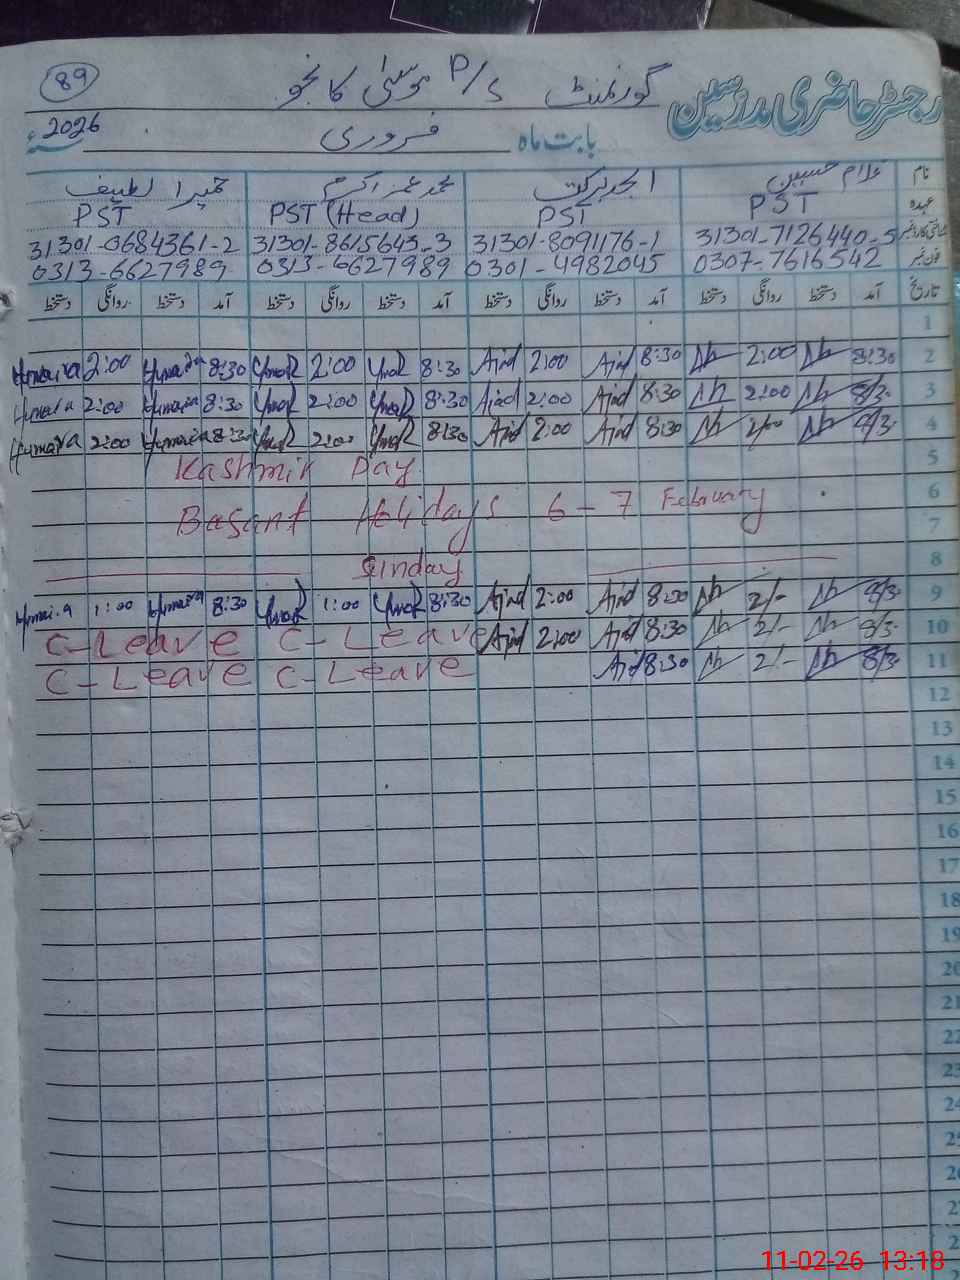 89
گورنمنٹ P/S موسیٰ کا نجو
رجسٹر حاضری مدرسین
2026ء
بابت ماہ فروری
نام غلام حسین امجد برکت محمد عمر اکرم حمیرا لطیف
عہدہ PST PST PST (Head) PST
31301-7126440-5 31301-8091176-1 31301-8615645-3 31301-0684361-2
فون نمبر 0307-7616542 0301-4982045 0313-6627989 0313-6627989
تاریخ آمد دستخط روانگی دستخط آمد دستخط روانگی دستخط آمد دستخط روانگی دستخط آمد دستخط روانگی دستخط
1
Humaira 2:00 Humaira 8:30 Umar 2:00 Umar 8:30 Ajd 2:00 Ajd 8:30 2:00 8:30 2
Humaira 2:00 Humaira 8:30 Umar 2:00 Umar 8:30 Ajd 2:00 Ajd 8:30 2:00 8/3. 3
Humaira 2:00 Humaira 8:30 Umar 2:00 Umar 8:30 Ajd 2:00 Ajd 8:30 2:00 8/3. 4
Kashmir Day 5
Basant Holidays 6-7 February 6
7
Sunday 8
Humaira 1:00 Humaira 8:30 Umar 1:00 Umar 8:30 Ajd 2:00 Ajd 8:30 2/- 8/3. 9
C-Leave C-Leave Ajd 2:00 Ajd 8:30 2/- 8/3. 10
C-Leave C-Leave Ajd 8:30 2/- 8/3. 11
12
13
14
15
16
17
18
19
20
21
22
23
24
25
26
27
11-02-26 13:18